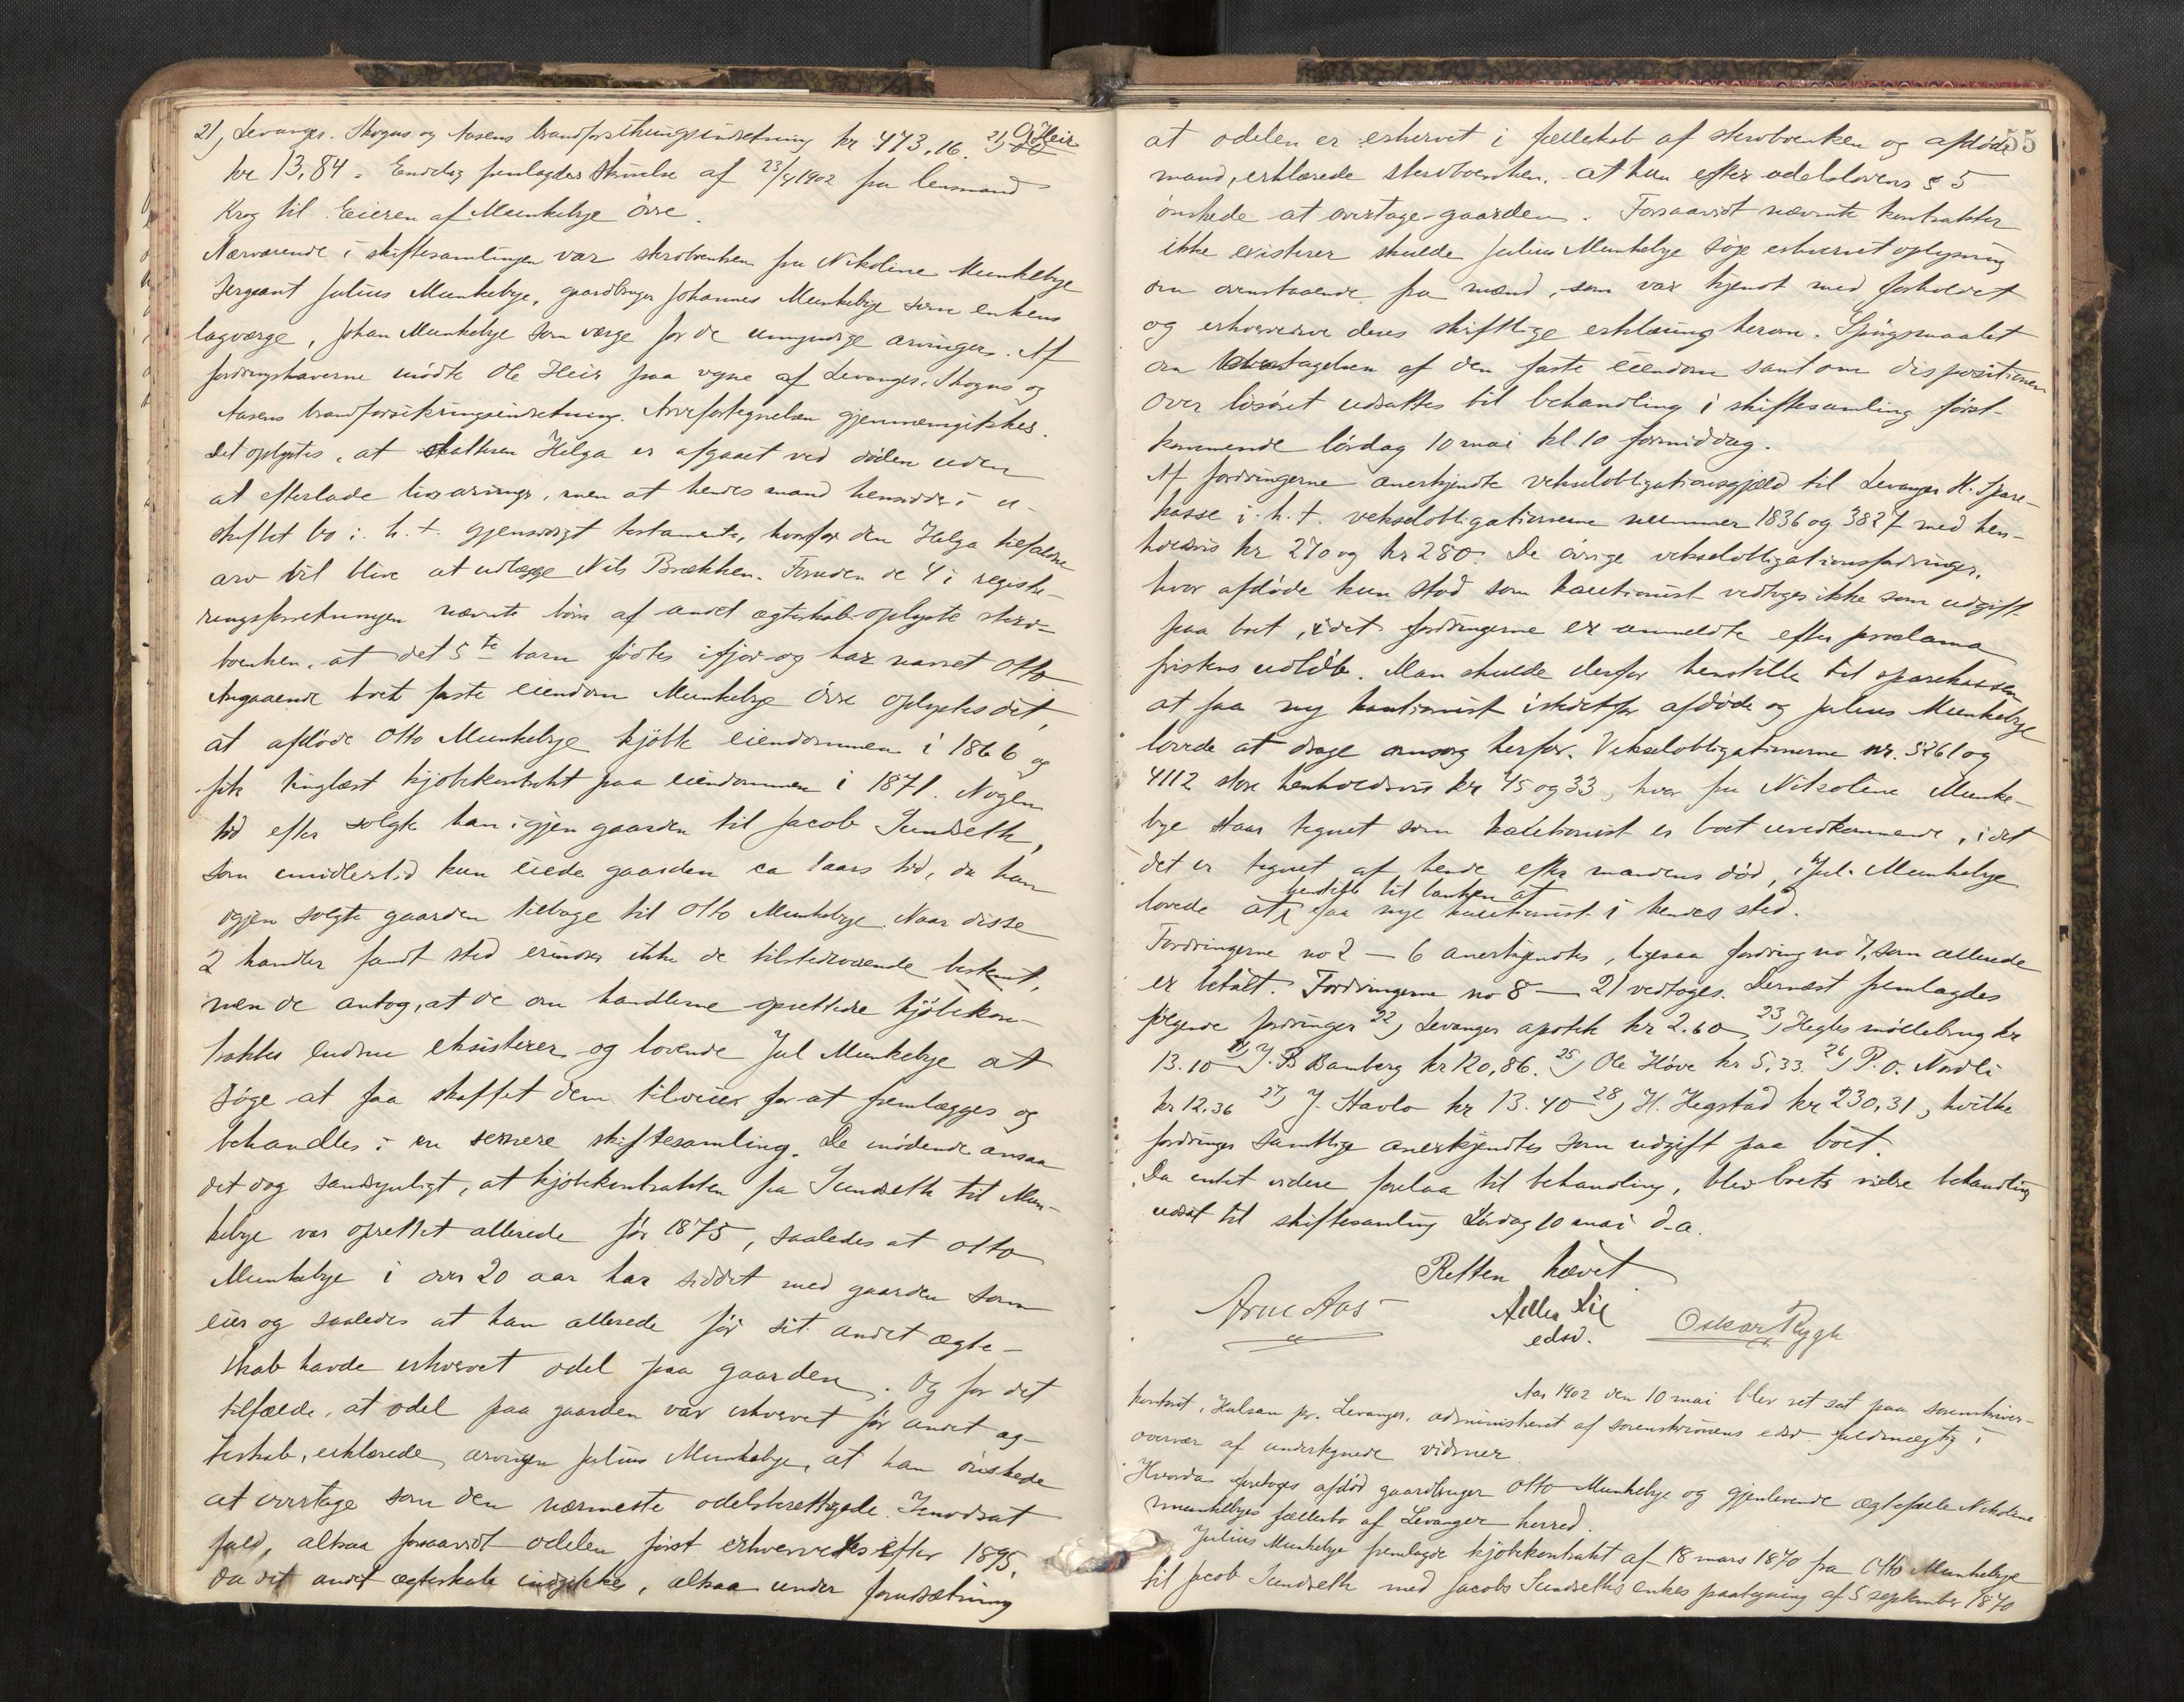 21, Levanger. Skogns og Aasens brandforsikringsindretning kr 473,16. 21, O. Heir
kr 13,84. Endelig fremlagdes skrivelse af 23/4 1902 fra lensmand
Krog til Eieren af Munkebye övre.
Nærværende i skiftesamlingen var skrobenken fru Nikoline Munkebye
Sergeant Julius Munkebye, gaardbruger Johannes Munkebye som enkens
lagværge, Johan Munkebye som værge for de umyndige arvinger. Af
fordringshaverne mödte Ole Heir paa vegne af Levanger, Skogns og
Aasens brandforsikringsindretning. Arvefortegnelsen gjennemgikkes.
Det oplystes, at datteren Helga er afgaaet ved döden uden
at efterlade livsarvinger, men at hendes mand hensidder i u-
skiftet bo i. h. t. gjensidigt testamente, hvorfor den Helga tilfaldne
arv vil blive at udlægge Nils Brækken. Foruden de 4 i registe-
ringsforretningen nævnte börn af andet ægteskab oplyste skrø-
boenken, at det 5te barn födtes ifjor og har navnet Otto
Angaaende boets faste eiendom Munkebye övre oplystes det,
at afdöde Otto Munkebye kjöbte eiendommen i 1866 og
fik tinglæst kjöbekontrakt paa eiendommen i 1871. Nogen
tid efter solgte han igjen gaarden til Jacob Sundseth,
som imidlertid kun eiede gaarden ca 1 aars tid, da han
igjen solgte gaarden tilbage til Otto Munkebye. Naar disse
2 handler fandt sted erindres ikke de tilstedeværende bestemt,
men de antog, at de om handlerne oprettede kjöbekon-
trakter endnu eksisterer og lovende Jul Munkebye at
söge at faa skaffet dem tilveie for at fremlægges og
behandles i en senere skiftesamling. De mödende ansaa
det dog sandsynligt, at kjöbekontrakten fra Sundseth til Mun-
kebye var oprettet allerede för 1875, saaledes at Otto
Munkebye i over 20 aar har siddet med gaarden som
eier og saaledes at han allerede för sit andet ægte-
skab havde erhvervet odel paa gaarden. Og for det
tilfælde, at odel paa gaarden var erhvervet för andet æg-
teskab, erklærede arvingen Julius Munkebye, at han önskede
at overtage som den nærmeste odelsberettigede. I modsat
fald, altsaa forsaavidt odelen först erhvervedes efter 1895,
da det andet ægteskab indgikkes, altsaa under forudsætning
55
at odelen er erhervet i fælleskab af skrobenken og afdöde
mand, erklærede skrobenken, at hun efter odelslovens § 5
önskede at overtage gaarden. Forsaavidt nævnte kontrakter
ikke existerer skulde Julius Munkebye söge erhvervet oplysning
om ovenstaaende fra mænd, som var kjendt med forholdet
og erhverve deres skriftlige erklæring herom. Spörgsmaalet
om overtagelsen af den faste eiendom samt om dispositionen
over lösöret udsattes til behandling i skiftesamling först-
kommende lördag 10 mai kl. 10 formiddag.
Af fordringerne anerkjendte vekselobligationsgjæld til Levanger H. Spare-
kasse i. h. t. vekselobligationerne nummer 1836 og 3827 med hen-
holdsvis kr 270 og kr 280. De övrige vekselobligationsfordringer,
hvor afdöde kun stod som kautionist vedtoges ikke som udgift
paa boet, idet fordringerne er anmeldte efter proclama
fristens udlöb. Man skulde derfor henstille til sparekassen
at faa ny kautionist istedetfor afdöde og Julius Munkebye
lovede at drage omsorg herfor. Vekselobligationerne nr. 3261 og
4112 store henholdsvis kr 45 og 33, hvor fru Nikoline Munke-
bye staar tegnet som kautionist er boet uvedkommende, idet
det er tegnet af hende efter mandens död, Jul. Munkebye
lovede at henstille til banken at faa nye kautionist i hendes sted.
Fordringerne no 2 — 6 anerkjendtes, ligesaa fordring no 7, som allerede
er betalt. Fordringerne no 8 — 21 vedtoges. Dernæst fremlagdes
fölgende fordringer 22, Levanger apothek kr 2.60, 23, Hegles möllebrug kr
13.10 24, J. B Bamberg kr 120,86. 25, Ole Höve kr 5,33. 26, P. O. Nordli
kr 12.36 27, J. Stavlo kr 13.40 28, H. Hegstad kr 230,31, hvilke
fordringer samtlige anerkjendtes som udgift paa boet.
Da intet videre forelaa til behandling, blev boets videre behandling
udsat til skiftesamling Lördag 10 mai d. a.
Retten hævet
Arne Aas
Adler Lie
edsv.
Oskar Rygh
Aar 1902 den 10 mai blev ret sat paa sorenskriver-
kontoret, Halsan pr. Levanger, administreret af sorenskriverens edsv. fuldmægtig i
overvær af undertegnede vidner
Hvorda foretoges afdöd gaardbruger Otto Munkebye og gjenlevende ægtefælle Nikoline
Munkebyes fællesbo af Levanger herred.
Julius Munkebye fremlagde kjöbekontrakt af 18 mars 1870 fra Otto Munkebye
til Jacob Sundseth med Jacobs Sundseths enkes paategning af 5 september 1870